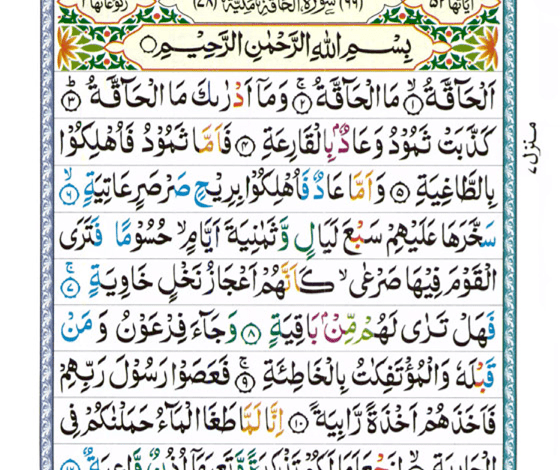 اٰيَاتُهَا ٥٢ (٦٩) سُوْرَةُ الْحَآقَّةِ مَكِّيَّةٌ (٧٨) رُكُوْعَاتُهَا ٢
بِسْمِ اللّٰهِ الرَّحْمٰنِ الرَّحِيْمِ
اَلْحَآقَّةُ ۙ‏﴿۱﴾ مَا الْحَآقَّةُ ۚ‏﴿۲﴾ وَمَاۤ اَدْرٰىكَ مَا الْحَآقَّةُ ؕ‏﴿۳﴾
كَذَّبَتْ ثَمُوْدُ وَعَادٌۢ بِالْقَارِعَةِ ﴿۴﴾ فَاَمَّا ثَمُوْدُ فَاُهْلِكُوْا
بِالطَّاغِيَةِ ﴿۵﴾ وَاَمَّا عَادٌ فَاُهْلِكُوْا بِرِيْحٍ صَرْصَرٍ عَاتِيَةٍ ۙ‏﴿۶﴾
سَخَّرَهَا عَلَيْهِمْ سَبْعَ لَيَالٍ وَّثَمٰنِيَةَ اَيَّامٍ ۙ حُسُوْمًا فَتَرَى
الْقَوْمَ فِيْهَا صَرْعٰى ۙ كَاَنَّهُمْ اَعْجَازُ نَخْلٍ خَاوِيَةٍ ۚ‏﴿۷﴾
فَهَلْ تَرٰى لَهُمْ مِّنْۢ بَاقِيَةٍ ﴿۸﴾ وَجَآءَ فِرْعَوْنُ وَمَنْ
قَبْلَهٗ وَالْمُؤْتَفِكٰتُ بِالْخَاطِئَةِ ۚ‏﴿۹﴾ فَعَصَوْا رَسُوْلَ رَبِّهِمْ
فَاَخَذَهُمْ اَخْذَةً رَّابِيَةً ﴿۱۰﴾ اِنَّا لَمَّا طَغَا الْمَآءُ حَمَلْنٰكُمْ فِى
الْجَارِيَةِ ۙ‏﴿۱۱﴾ لِنَجْعَلَهَا لَكُمْ تَذْكِرَةً وَّتَعِيَهَاۤ اُذُنٌ وَّاعِيَةٌ ﴿۱۲﴾
منزل ٧